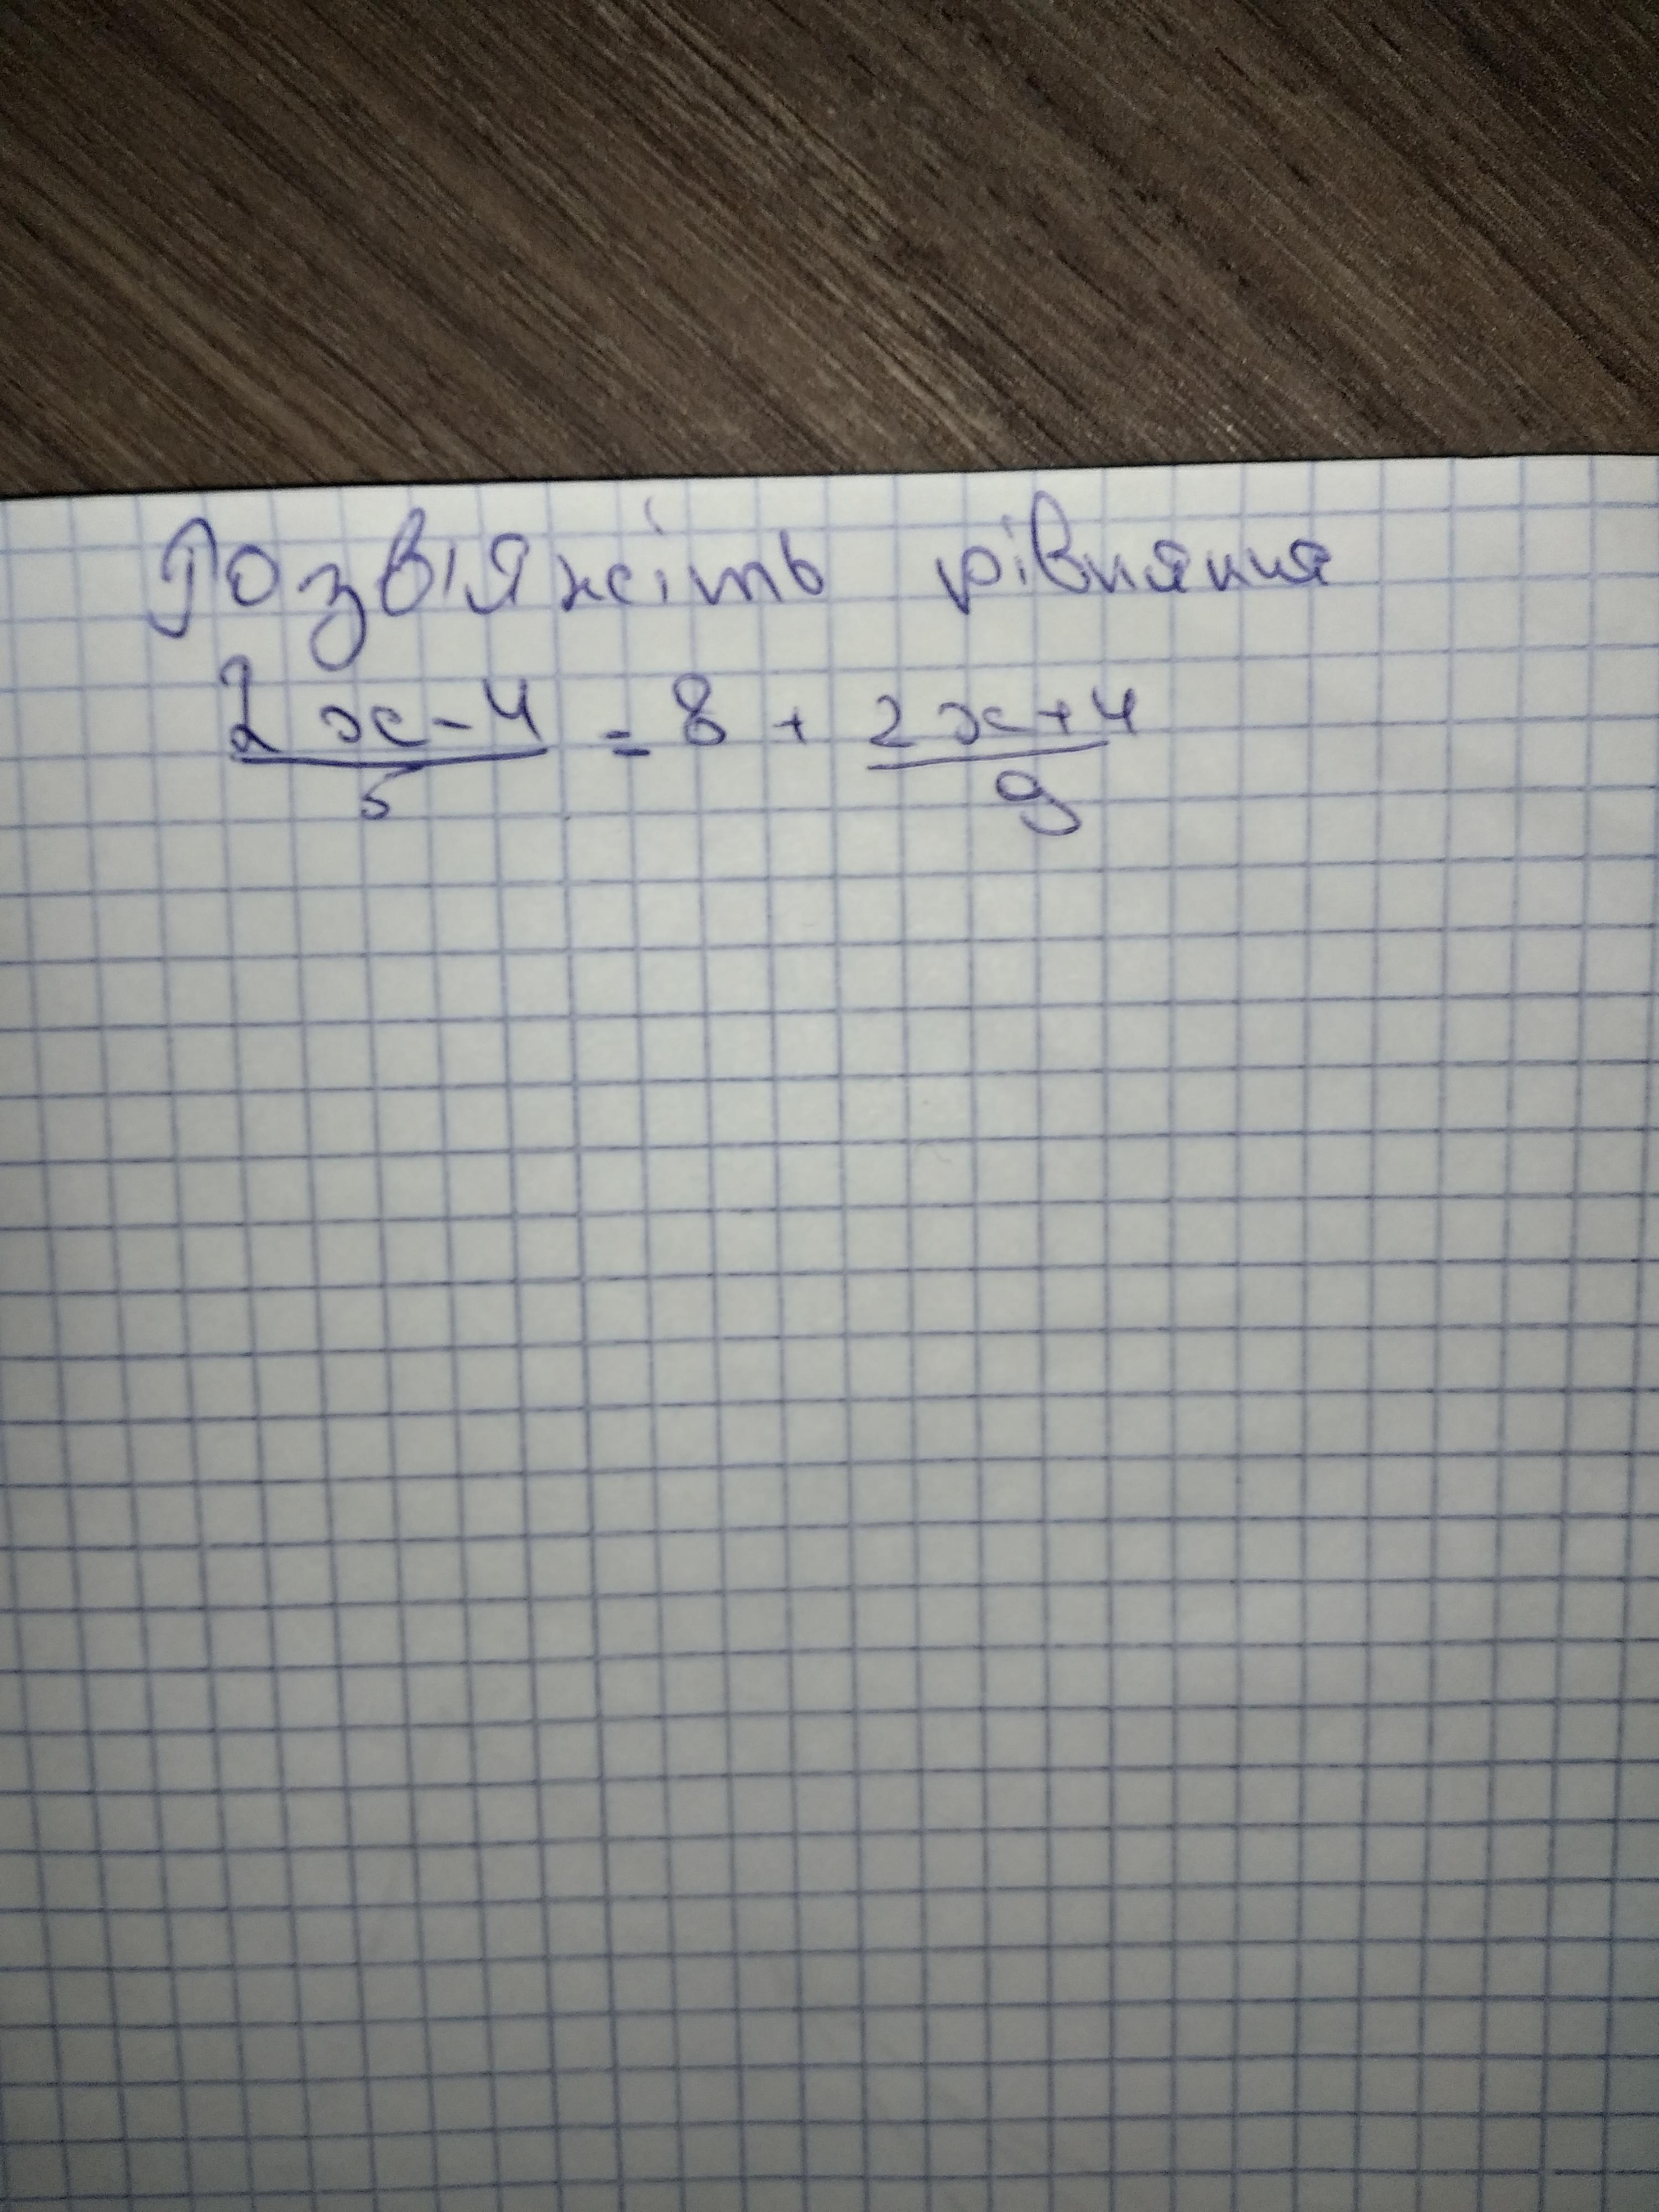 Розв'яжіть рівняння
2x-4/5 = 8 + 2x+4/9